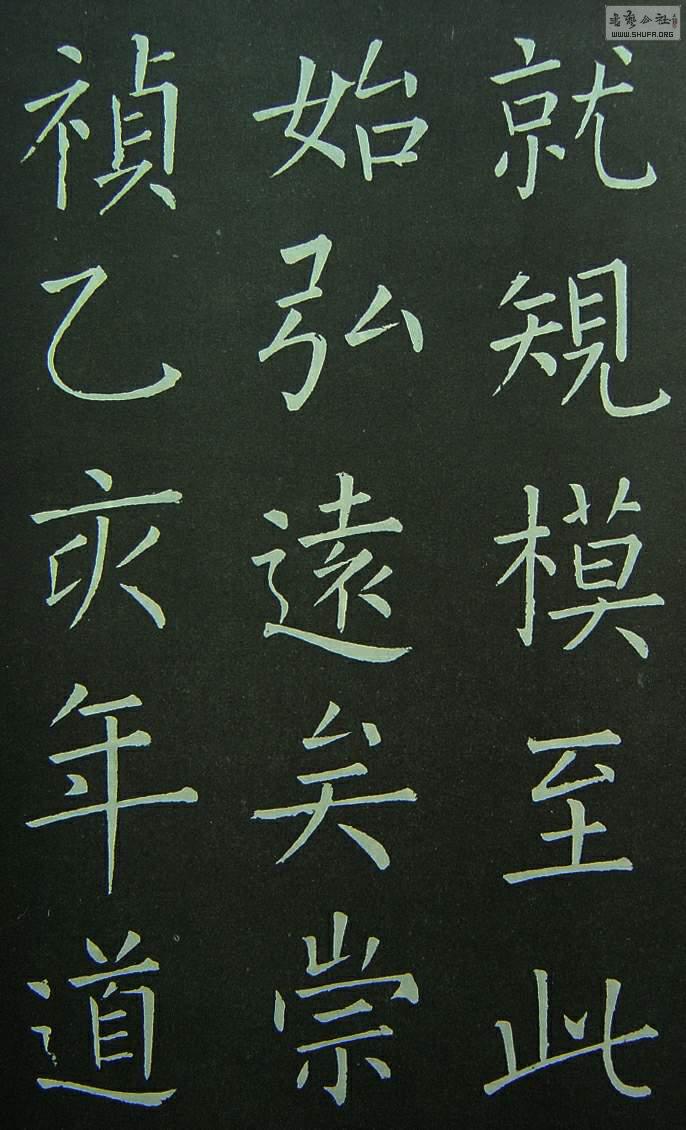 就規模至此
始弘遠矣崇
禎乙亥年道
WWW.SHUFA.ORG